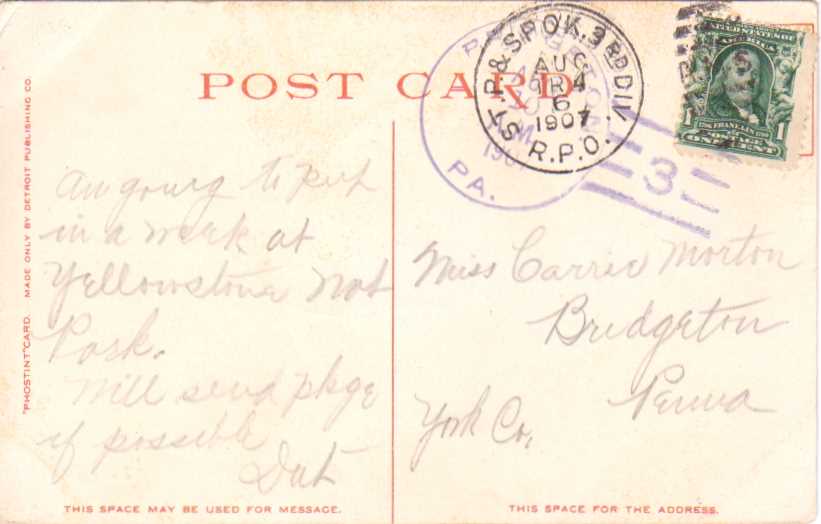 POST CARD
ST. P. & SPOK. 3RD DIV.
AUG
TR 4
6
1907
R.P.O.
PA.
3
UNITED STATES OF
AMERICA
1706 FRANKLIN 1790
1 POSTAGE 1
ONE CENT
"PHOSTINT" CARD. MADE ONLY BY DETROIT PUBLISHING CO.
Am going to put
in a week at
Yellowstone Nat
Park.
Will send pkge
if possible
Miss Carrie Morton
Bridgeton
York Co. Penna
THIS SPACE MAY BE USED FOR MESSAGE.
THIS SPACE FOR THE ADDRESS.